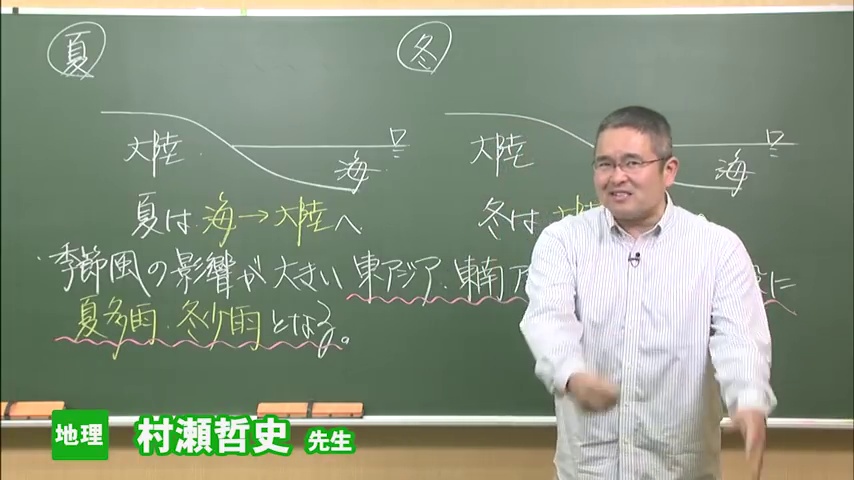 夏
冬
大陸
海
大陸
海
夏は 海→大陸へ
冬は
季節風の影響が大きい 東アジア・東南ア
に
夏多雨・冬少雨となる。
地理 村瀬哲史 先生